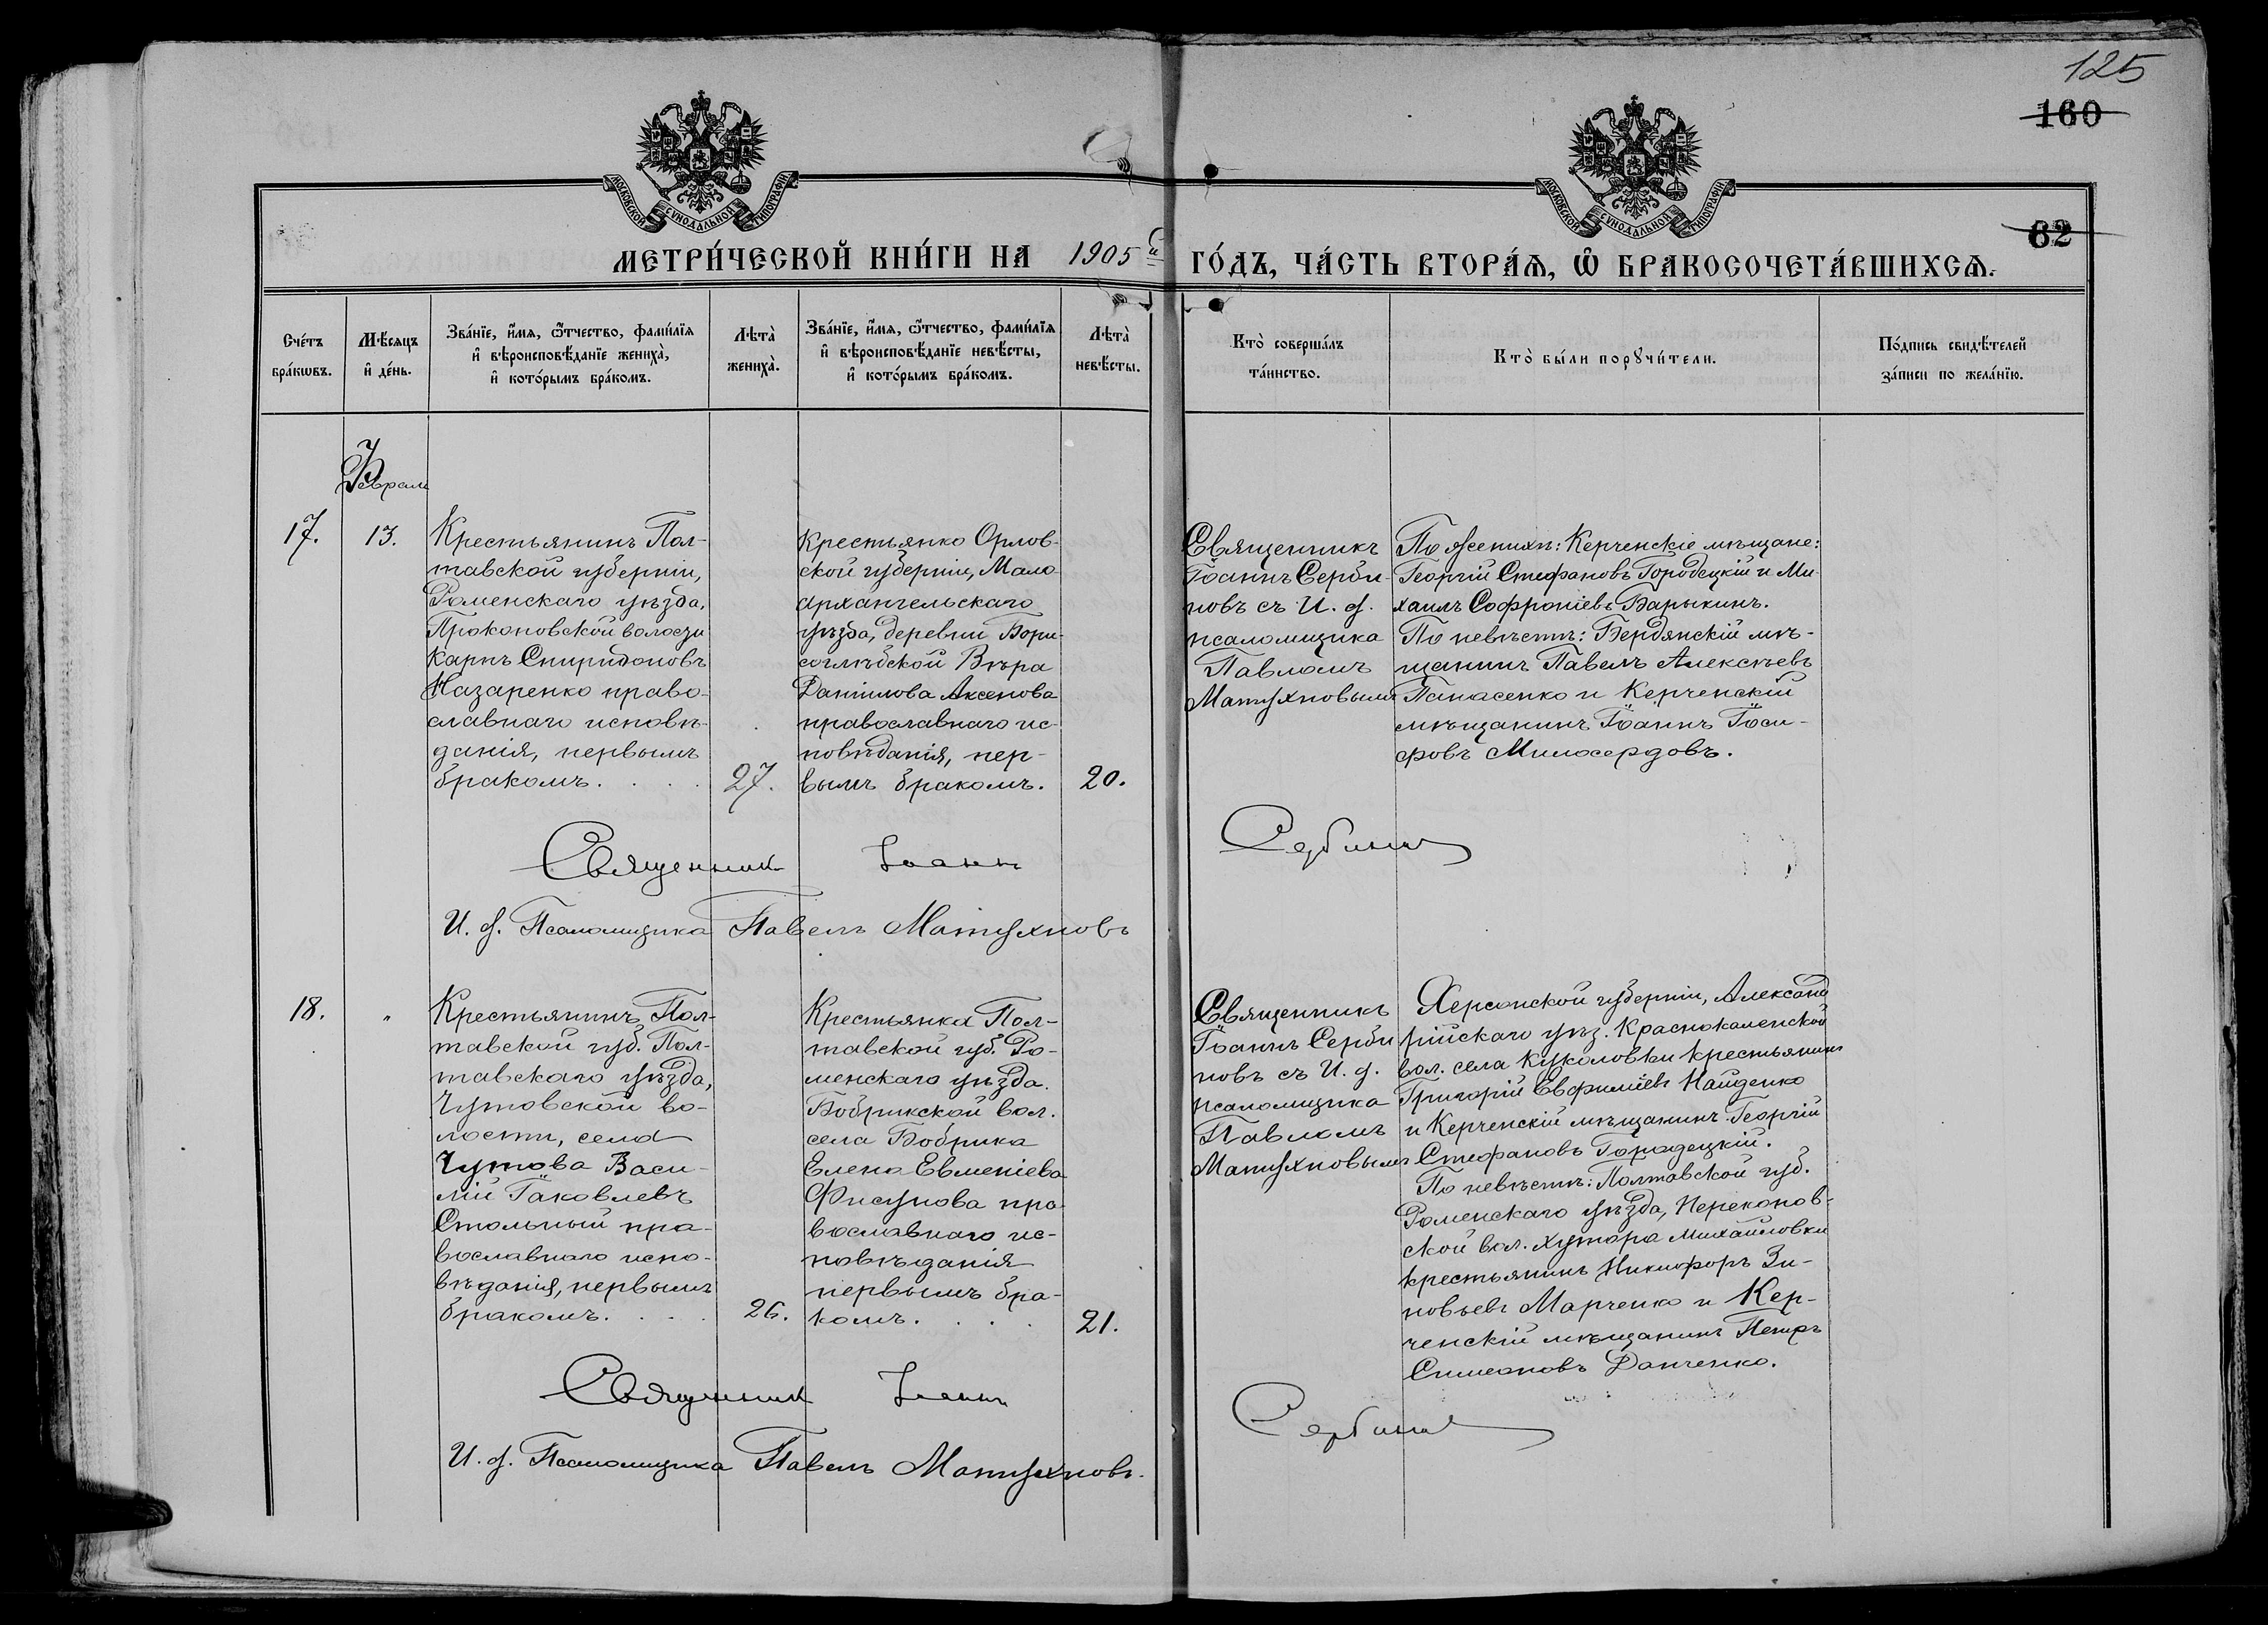 125
160
62
МОСКОВСКОЙ СѴНОДАЛЬНОЙ ТИПОГРАФІИ
МОСКОВСКОЙ СѴНОДАЛЬНОЙ ТИПОГРАФІИ
МЕТРИ́ЧЕСКОЙ КНИ́ГИ НА 1905й ГО́ДЪ, ЧА́СТЬ ВТОРА́Ѧ, Ѽ БРАКОСОЧЕТА́ВШИХСѦ.
Сче́тъ
бра́кѡвъ.
Мѣ́сѧцъ
и҆ де́нь.
Зва́нїе, и҆́мѧ, ѻ҆́тчество, фами́лїѧ
и҆ вѣроисповѣ́данїе жениха̀,
и҆ кото́рымъ бра́комъ.
Лѣта̀
жениха̀.
Зва́нїе, и҆́мѧ, ѻ҆́тчество, фами́лїѧ
и҆ вѣроисповѣ́данїе невѣ́сты,
и҆ кото́рымъ бра́комъ.
Лѣта̀
невѣ́сты.
Кто̀ соверша́лъ
та́инство.
Кто̀ бы́ли порꙋчи́тели.
По́дпись свидѣ́телей
за́писи по жела́нїю.
Февраль
17.
13.
Крестьянинъ Пол-
тавской губерніи,
Роменскаго уѣзда,
Проконовской волости
Карпъ Спиридоновъ
Назаренко право-
славнаго исповѣ-
данія, первымъ
бракомъ. . . .
27.
Крестьянка Орлов-
ской губерніи, Мало-
архангельскаго
уѣзда, деревни Бори-
соглѣбской Вѣра
Даніилова Аксенова
православнаго ис-
повѣданія, пер-
вымъ бракомъ.
20.
Священникъ
Іоаннъ Серби-
новъ съ И. д.
псаломщика
Павломъ
Матухновымъ
По женихѣ: Керченскіе мѣщане:
Георгій Стефановъ Городецкій и Ми-
хаилъ Софроніевъ Варыкинъ.
По невѣстѣ: Бердянскій мѣ-
щанинъ Павелъ Алексѣевъ
Панасенко и Керченскій
мѣщанинъ Іоаннъ Іоси-
фовъ Милосердовъ.
Священникъ Іоаннъ Сербиновъ
И. д. Псаломщика Павелъ Матухновъ
18.
"
Крестьянинъ Пол-
тавской губ. Пол-
тавскаго уѣзда,
Чутовской во-
лости, села
Чутова Васи-
лій Іаковлевъ
Стольный пра-
вославнаго испо-
вѣданія, первымъ
бракомъ. . . .
26.
Крестьянка Пол-
тавской губ. Ро-
менскаго уѣзда.
Бобрикской вол.
села Бобрика
Елена Евменіева
Фисунова пра-
вославнаго ис-
повѣданія
первымъ бра-
комъ. . . .
21.
Священникъ
Іоаннъ Серби
новъ съ И. д.
псаломщика
Павломъ
Матухновымъ
Херсонской губерніи, Александ
рійскаго уѣз. Краснокаменской
вол. села Куколовки крестьянинъ
Григорій Евфиміевъ Найденко
и Керченскій мѣщанинъ Георгій
Стефановъ Городецкій.
По невѣстѣ: Полтавской губ.
Роменскаго уѣзда, Переконов-
ской вол. хутора Михайловки
крестьянинъ Никифоръ Зи-
новьевъ Марченко и Кер-
ченскій мѣщанинъ Петръ
Симеоновъ Данченко.
Священникъ Іоаннъ Сербиновъ
И. д. Псаломщика Павелъ Матухновъ.